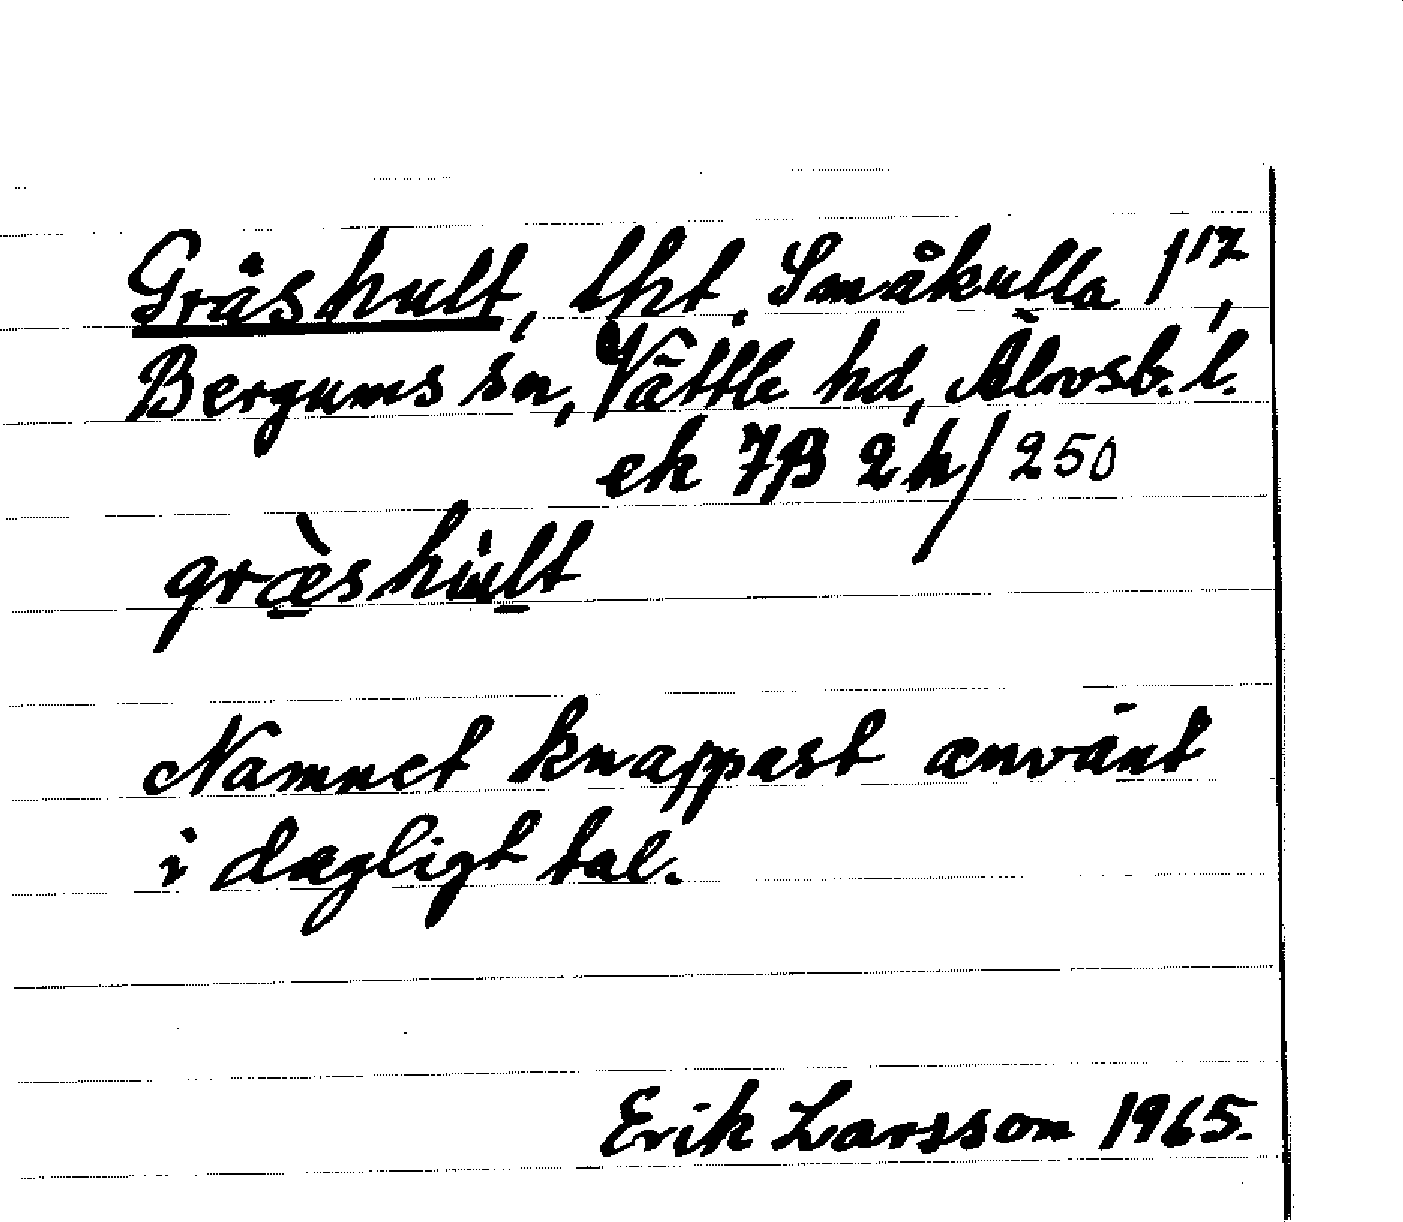 Gråshult, lht. Småkulla 1¹⁷,
Bergums sn, Vättle hd, Älvsb. l.
ek 7B 2h/250
græ̀shult
Namnet knappast använt
i dagligt tal.
Erik Larsson 1965.